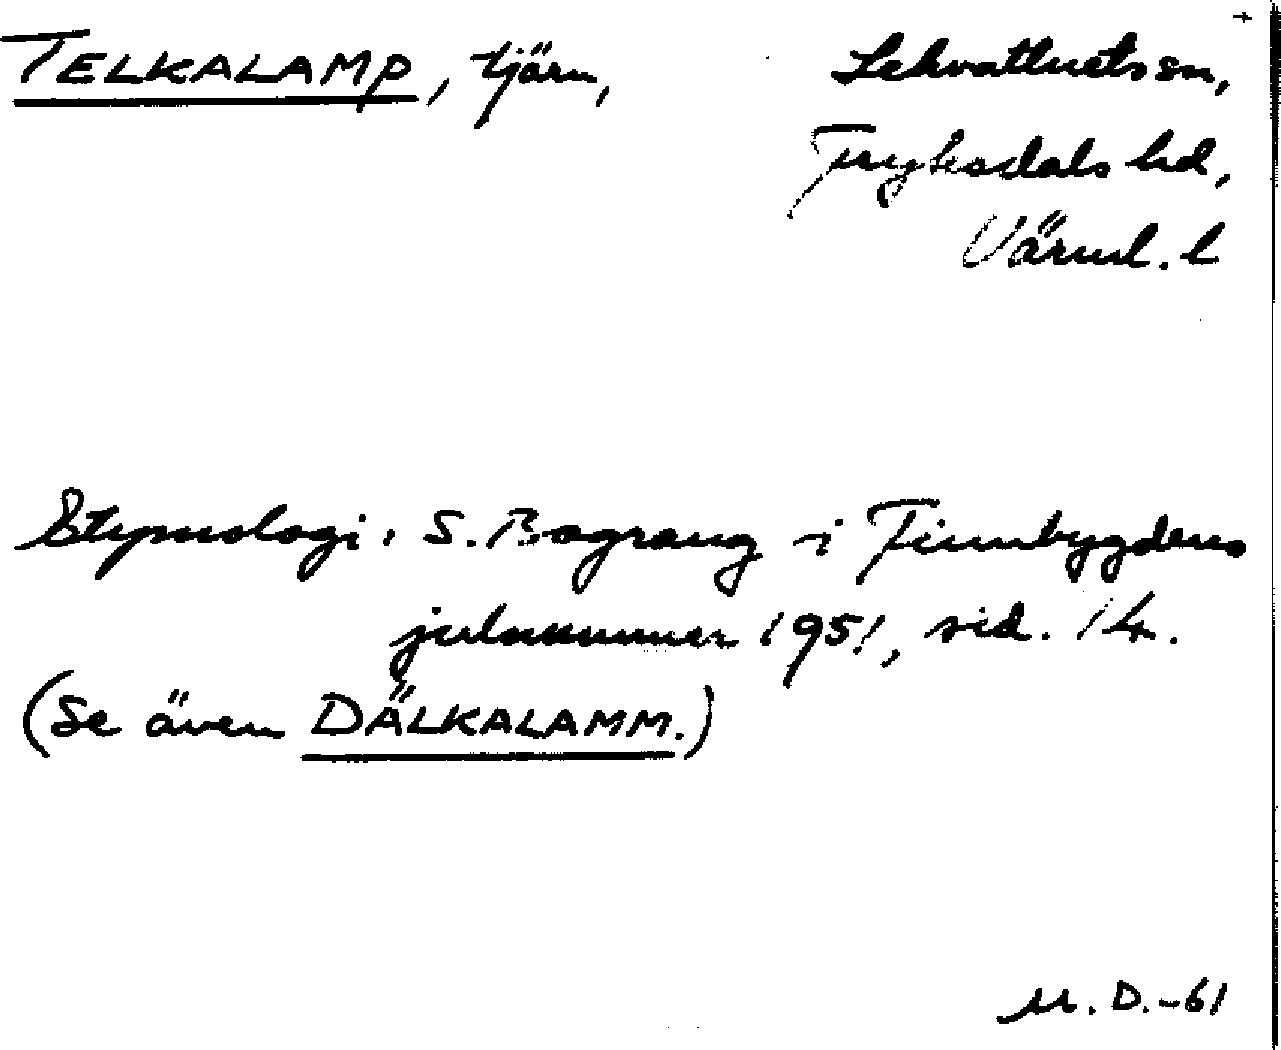 TELKALAMP, tjärn, Lekvattnets sn,
Fryksdals hd,
Värml. l
Etymologi: S. Bograng i Finnbygdens
julnummer 1951, sid. 14.
(Se även DÄLKALAMM.)
M. D. -61